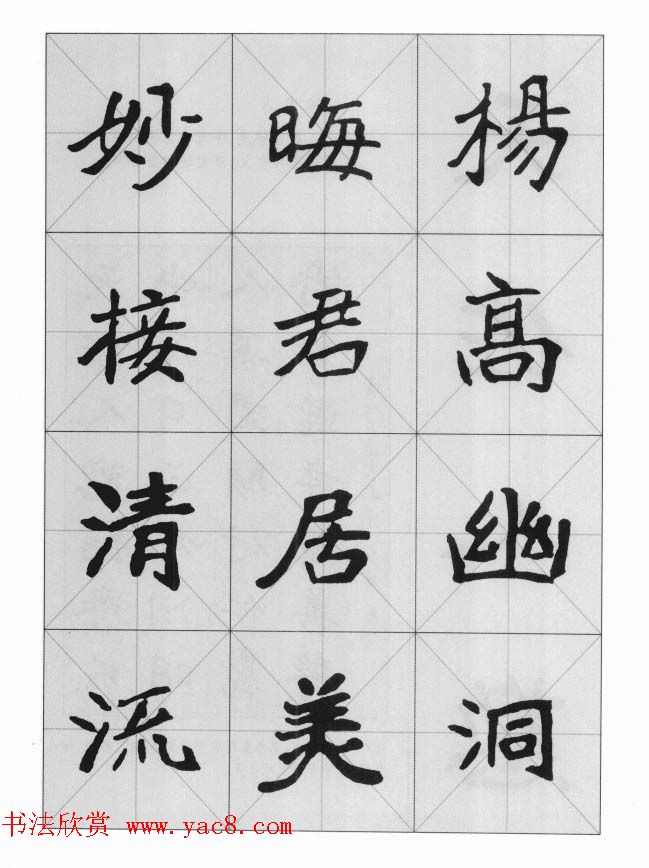 楊高幽洞
晦君居美
妙接清流
书法欣赏 www.yac8.com